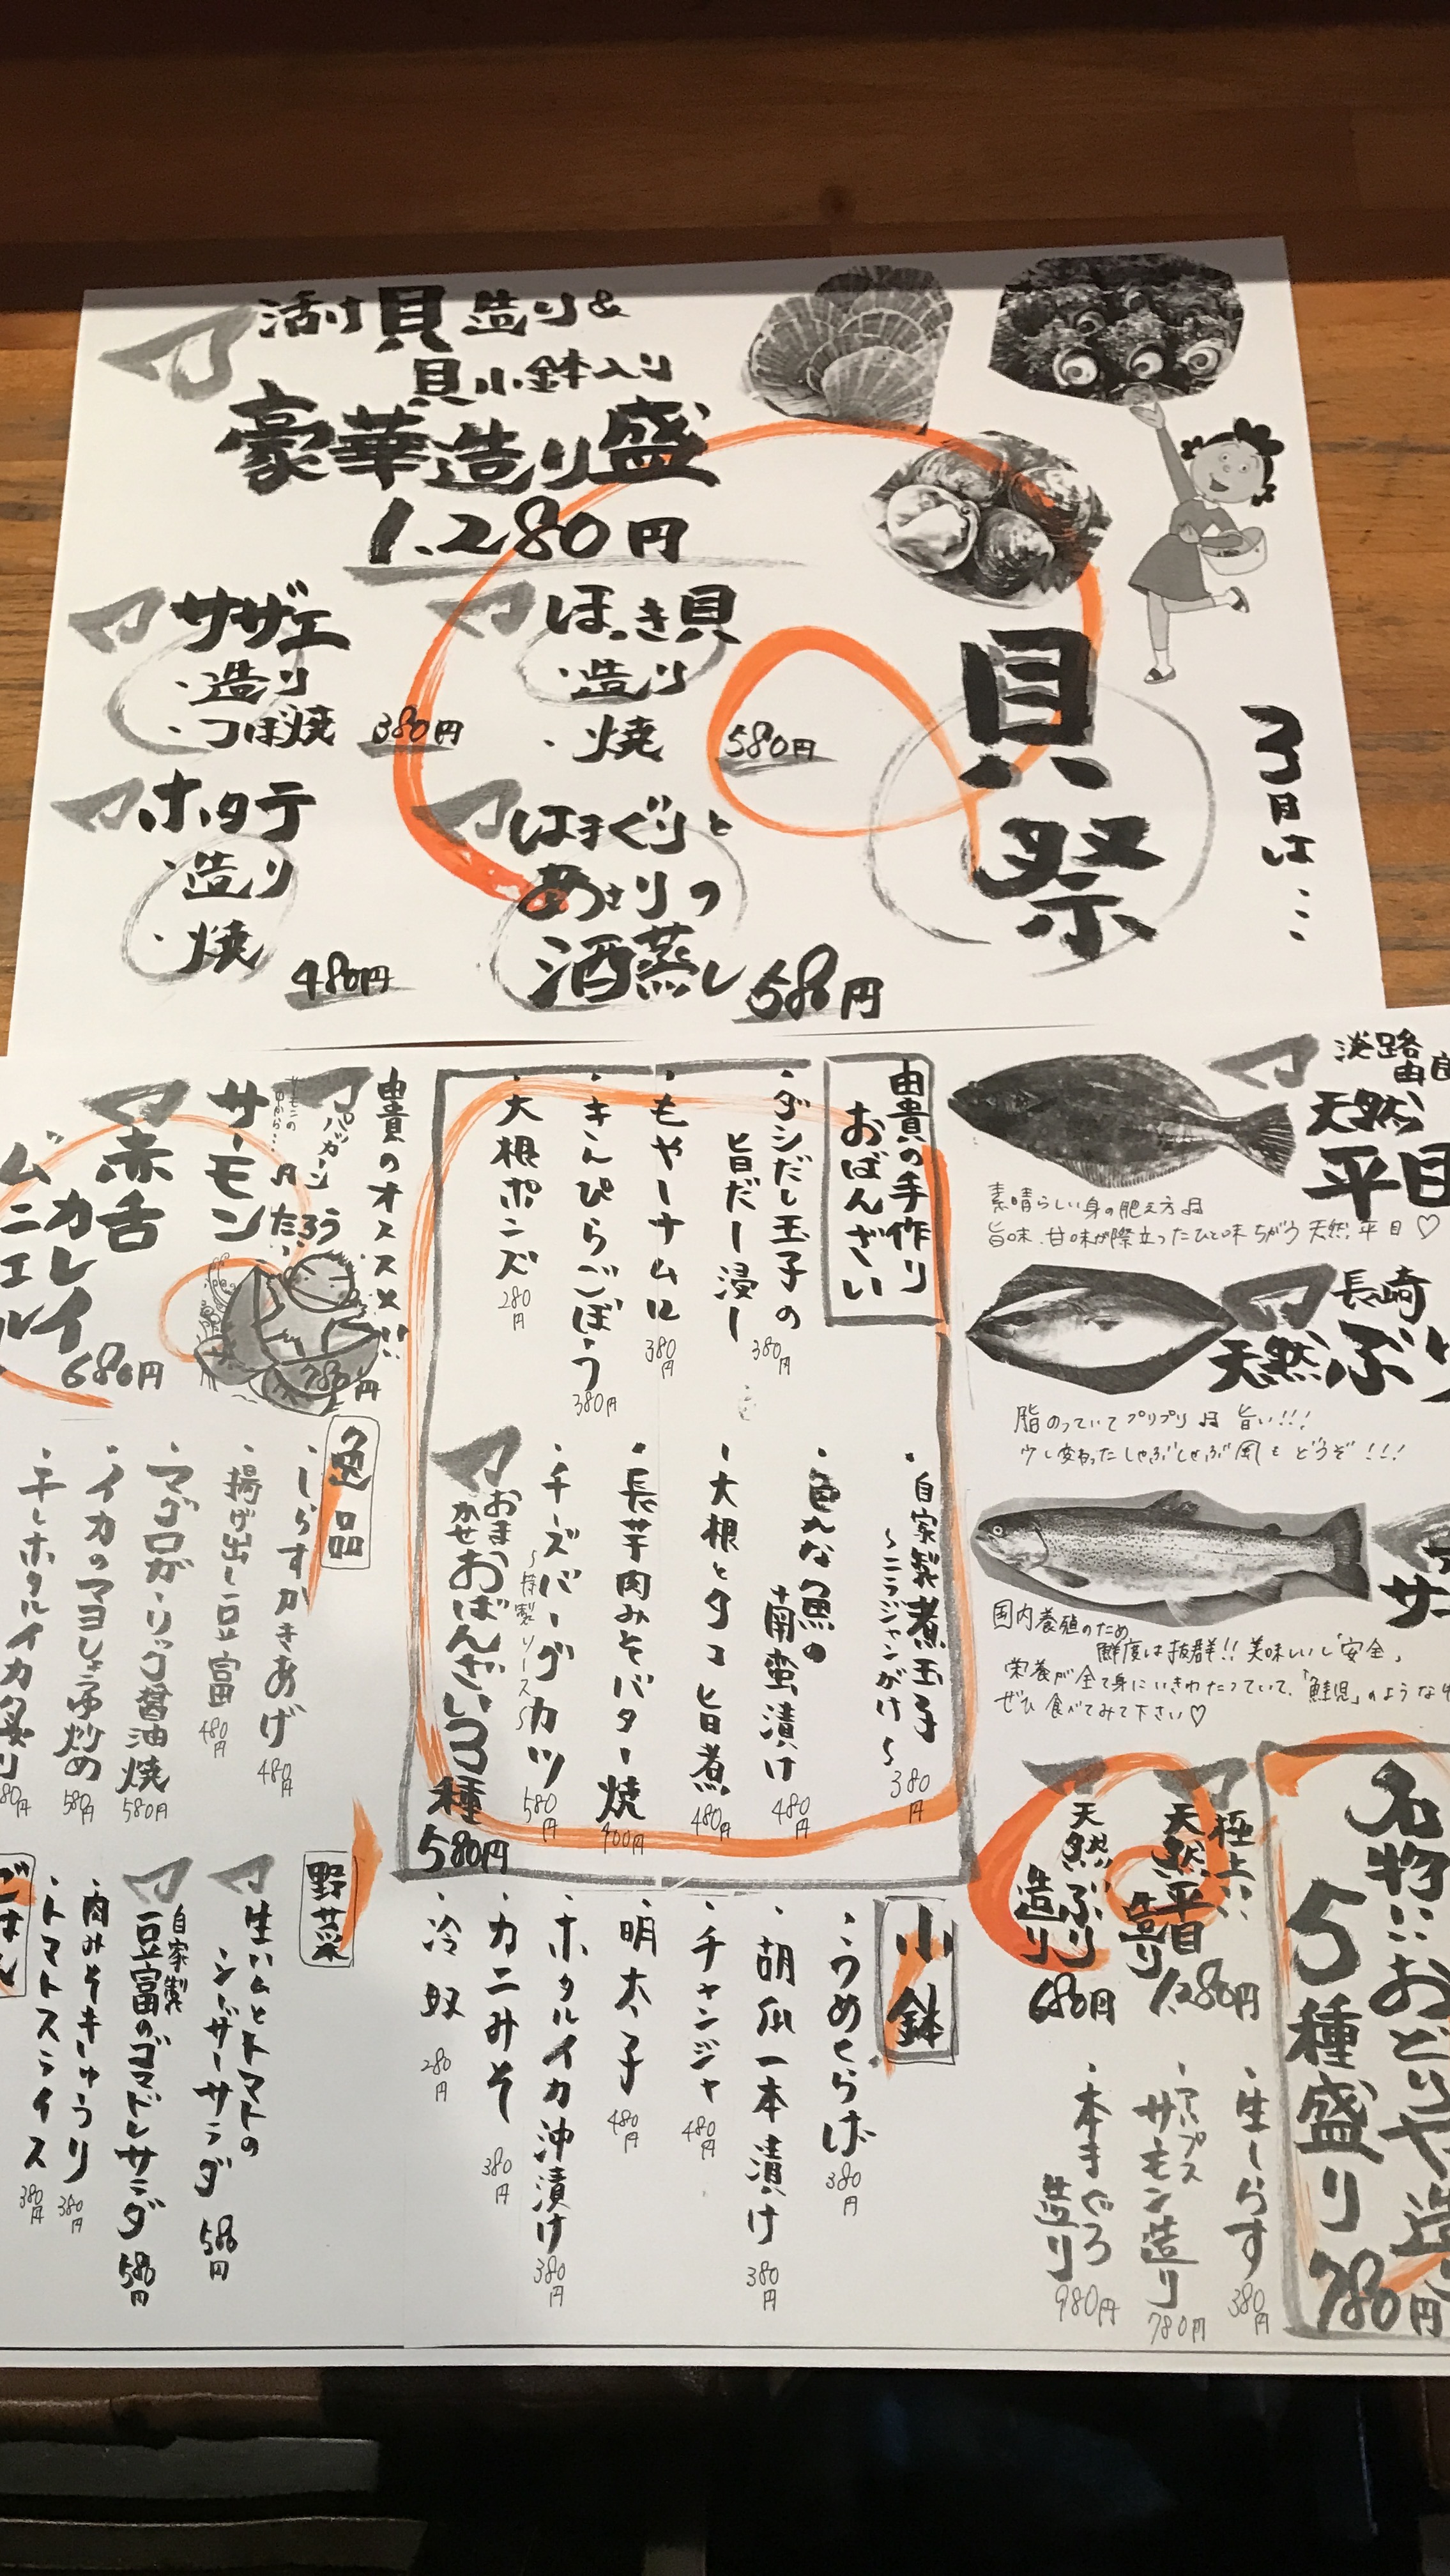 活け貝造り&
貝小鉢入り
豪華造り盛
1.280円
サザエ
・造り
・つぼ焼
380円
ほっき貝
・造り
・焼
580円
ホタテ
・造り
・焼
480円
はまぐりと
あさりの
酒蒸し
580円
貝祭
3月は…
淡路
由良
天然
平目
素晴らしい身の肥え方
旨味、甘味が際立ったひと味ちがう天然平目♡
長崎
天然ぶり
脂のっていてプリプリ 旨い!!!
少し変わったしゃぶしゃぶ風もどうぞ!!!
国内養殖のため
鮮度は抜群!!美味いし安全、
栄養が全て身にいきわたっていて、「鮭児」のような
ぜひ食べてみて下さい♡
名物!!おどりや造
5種盛り
780円
極上!!
天然平目
造り
1.280円
天然ぶり
造り
680円
・生しらす
380円
・アルプス
サーモン造り
780円
・本まぐろ
造り
980円
由貴の手作り
おばんざい
・ダシだし玉子の
旨だし浸し
380円
・もやしナムル
380円
・きんぴらごぼう
380円
・大根ポンズ
280円
・自家製煮玉子
〜ニラジャンがけ〜
380円
・色んな魚の
南蛮漬け
480円
・大根とタコ旨煮
480円
・長芋肉みそバター焼
・チーズバーグカツ
〜特製ソース〜
580円
おまかせ
おばんざい3種
580円
小鉢
・うめくらげ
380円
・胡瓜一本漬け
380円
・チャンジャ
480円
・明太子
480円
・ホタルイカ沖漬け
380円
・カニみそ
380円
・冷奴
280円
由貴のオススメ!!
サーモン
780円
赤舌
カレイ
ムニエル
680円
逸品
・しらすかきあげ
480円
・揚げ出し豆富
480円
・マグロガーリック醤油焼
580円
・イカのマヨしょうゆ炒め
580円
・干しホタルイカ炙り
80円
野菜
生ハムとトマトの
シーザーサラダ
580円
自家製
豆富のゴマドレサラダ
580円
・肉みそきゅうり
380円
・トマトスライス
380円
ごはん